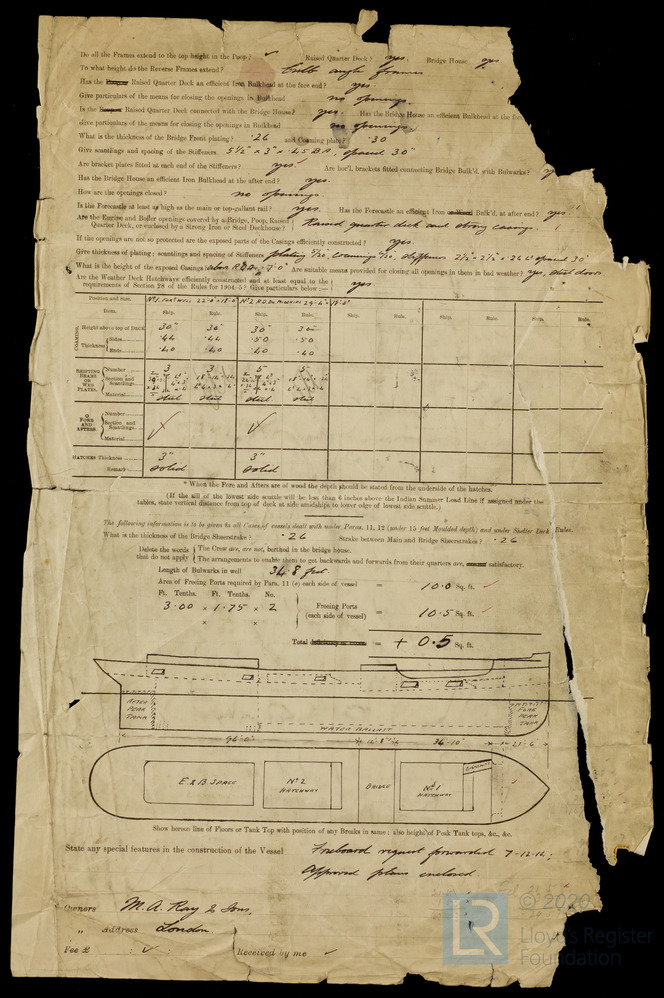 Do all the Frames extend to the top height in the Poop? ✓ Raised Quarter Deck? yes. Bridge House yes.
To what height do the Reverse Frames extend? Bulb angle frames
Has the Raised Quarter Deck an efficient Iron Bulkhead at the fore end? yes
Give particulars of the means for closing the openings in Bulkhead no openings.
Is the Raised Quarter Deck connected with the Bridge House? yes. Has the Bridge House an efficient Bulkhead at the fore
Give particulars of the means for closing the openings in Bulkhead no openings
What is the thickness of the Bridge Front plating? .26 and Coaming plate? .30
Give scantlings and spacing of the Stiffeners 5½" × 3" × .45 B.A., spaced 30"
Are bracket plates fitted at each end of the Stiffeners? yes. Are hor'l. brackets fitted connecting Bridge Bulk'd. with Bulwarks?
Has the Bridge House an efficient Iron Bulkhead at the after end? yes.
How are the openings closed? no openings.
Is the Forecastle at least as high as the main or top-gallant rail? yes. Has the Forecastle an efficient Iron or Wood Bulk'd. at after end? yes
Are the Engine and Boiler openings covered by a Bridge, Poop, Raised Quarter Deck, or enclosed by a Strong Iron or Steel Deckhouse? Raised quarter deck and strong casings.
If the openings are not so protected are the exposed parts of the Casings efficiently constructed? yes.
Give thickness of plating; scantlings and spacing of Stiffeners plating 5/20, coamings 7/20, stiffeners 2½ × 2½ × .26 Ls spaced 30"
What is the height of the exposed Casings above R.Q.Dk = 7'0" Are suitable means provided for closing all openings in them in bad weather? yes, steel doors
Are the Weather Deck Hatchways efficiently constructed and at least equal to the requirements of Section 28 of the Rules for 1904-5? Give particulars below:— yes
Position and Size. Nº1. FOR'WELL 22'-0" × 18'-0" Nº2 R.Q.DK
Item. Ship. Rule. Ship. Rule. Ship. Rule. Ship. Rule.
COAMING Height above top of DECK 30" 30" 30"
Thickness Sides .44 .44 .50 .50
Ends .40 .40 .40 .40
SHIFTING BEAMS OR WEB PLATES. Number 3 3 5 5
Section and Scantlings
Material steel steel steel steel
FORE AND AFTERS. Number
Section and Scantlings ✓ ✓
Material
HATCHES Thickness 3" 3"
Remark solid solid
* When the Fore and Afters are of wood the depth should be stated from the underside of the hatches.
(If the sill of the lowest side scuttle will be less than 6 inches above the Indian Summer Load Line if assigned under the
tables, state vertical distance from top of deck at side amidships to lower edge of lowest side scuttle.)
The following information is to be given in all Cases of vessels dealt with under Paras. 11, 12 (under 15 feet Moulded depth) and under Shelter Deck Rules.
What is the thickness of the Bridge Sheerstrake? .26 Strake between Main and Bridge Sheerstrakes? .26
Delete the words that do not apply
The Crew are, are not, berthed in the bridge house.
The arrangements to enable them to get backwards and forwards from their quarters are, satisfactory.
Length of Bulwarks in well 34.8 feet.
Area of Freeing Ports required by Para. 11 (e) each side of vessel = 10.0 Sq. ft. ✓
Ft. Tenths. Ft. Tenths. No.
3.00 × 1.75 × 2 Freeing Ports (each side of vessel) = 10.5 Sq. ft.
× ×
Total = + 0.5 Sq. ft.
AFTER PEAK TANK
FORE PEAK TANK
WATER BALLAST
34'-10" 21-6
E & B. SPACE
Nº2 HATCHWAY
BRIDGE
Nº1 HATCHWAY
Show hereon line of Floors or Tank Top with position of any Breaks in same: also height of Peak Tank tops, &c., &c.
State any special features in the construction of the Vessel Freeboard request forwarded 7-12-14;
Approved plans enclosed.
Owners M. A. Ray & Sons,
" Address London.
Fee £ : ✓ : Received by me ✓
© 2020
LR
Lloyd's Register
Foundation